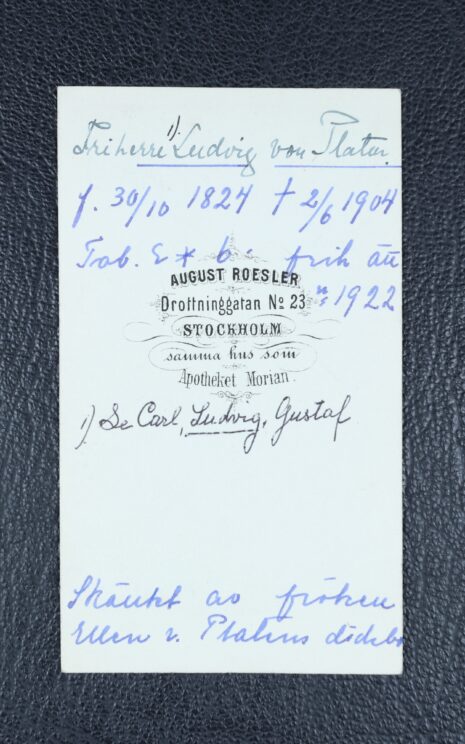 1).
Friherre Ludvig von Platen.
f. 30/10 1824 † 2/6 1904
Tab. E * b. frih ätt
nr 1922
AUGUST ROESLER
Drottninggatan No 23
STOCKHOLM
samma hus som
Apotheket Morian.
1) Se Carl, Ludvig, Gustaf
Skänkt av fröken
Ellen v. Platens dödsbo